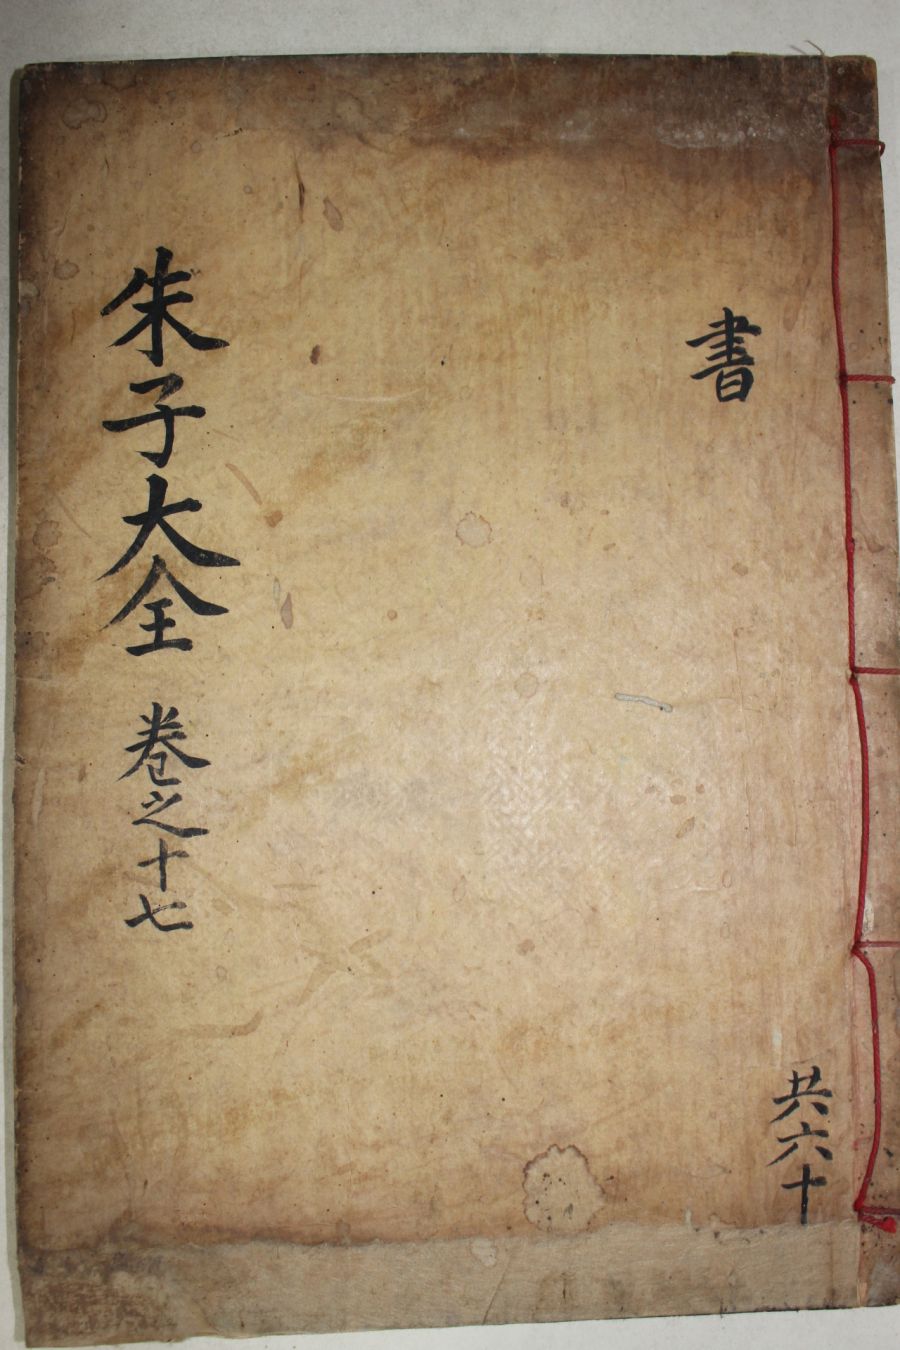 書
共六十
朱子大全 卷之十七